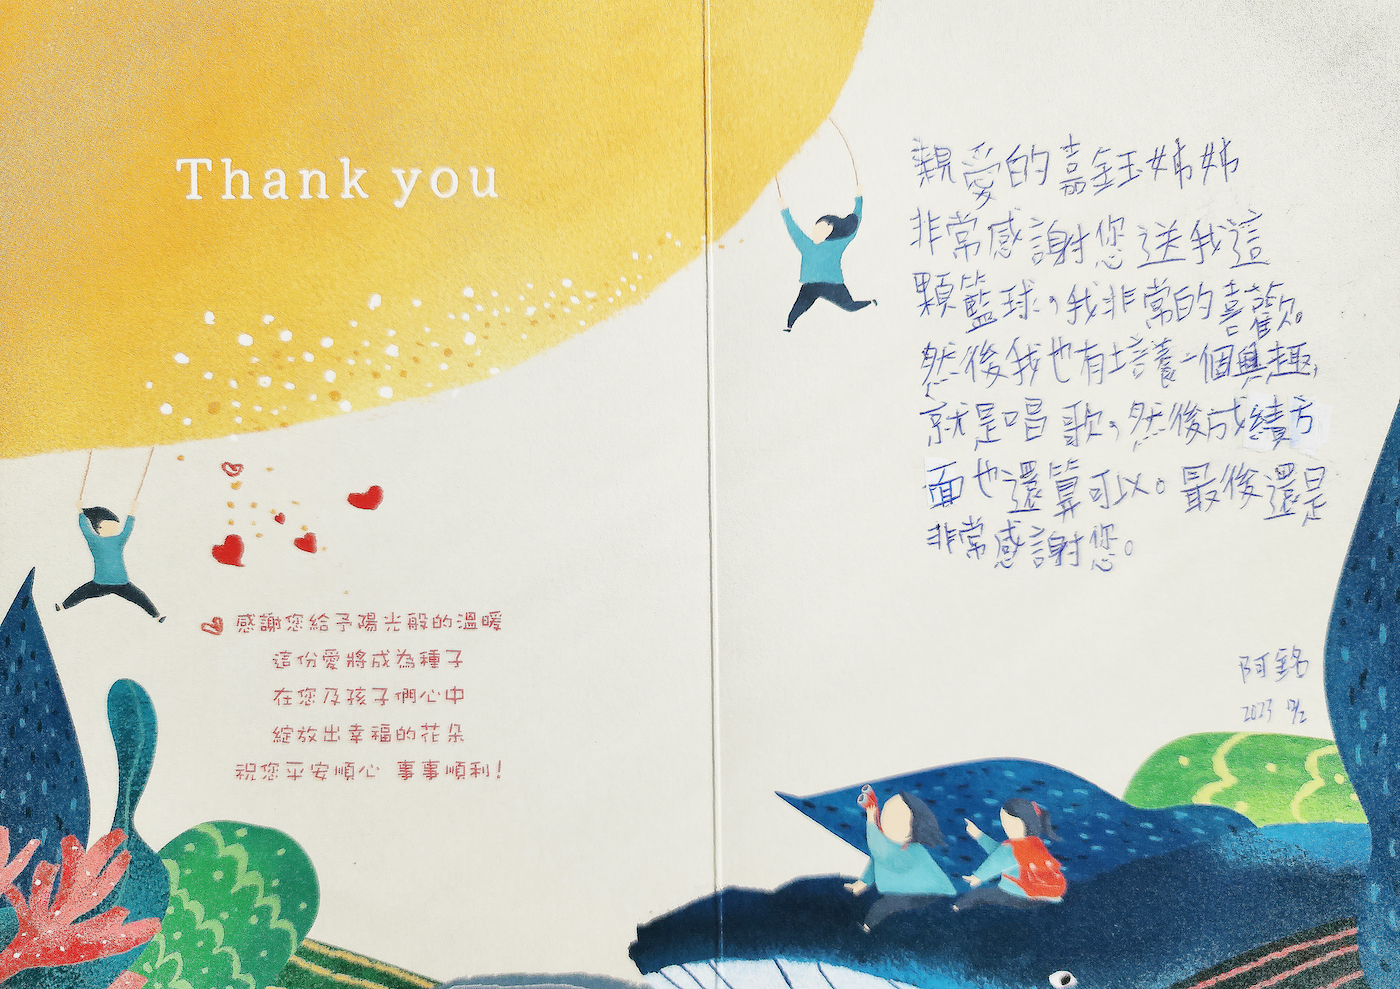 Thank you
感謝您給予陽光般的溫暖
這份愛將成為種子
在您及孩子們心中
綻放出幸福的花朵
祝您平安順心 事事順利!
親愛的嘉鈺姊姊
非常感謝您送我這
顆籃球,我非常的喜歡。
然後我也有培養一個興趣,
就是唱歌,然後成績方
面也還算可以。最後還是
非常感謝您。
阿銘
2023